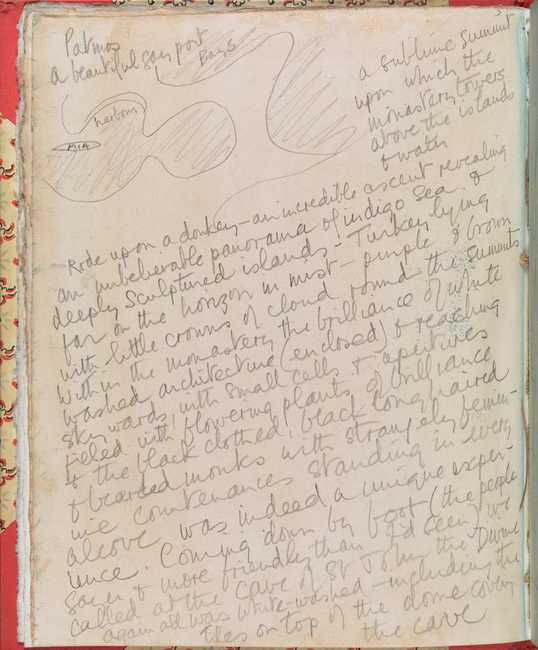 Patmos
a beautiful gay port
Bays
harbour
MIA
a sublime summit
upon which the
monastery towers
above the islands
& water
Rode upon a donkey – an incredible ascent revealing
an unbelievable panorama of indigo sea &
deeply sculptured islands – Turkey lying
far on the horizon in mist – purple & brown
with little crowns of cloud round the summits
Within the monastery the brilliance of white
washed architecture (enclosed) & reaching
skywards, with small cells & apertures
filled with flowering plants of brilliance
& the black clothed, black long haired
& bearded monks with strangely femin-
ine countenances standing in every
alcove was indeed a unique exper-
ience. Coming down by foot (the people
gayer & more friendly than I'd seen) we
called at the cave of St John the Divine
again all was white-washed – including the
tiles on top of the dome covering
the cave